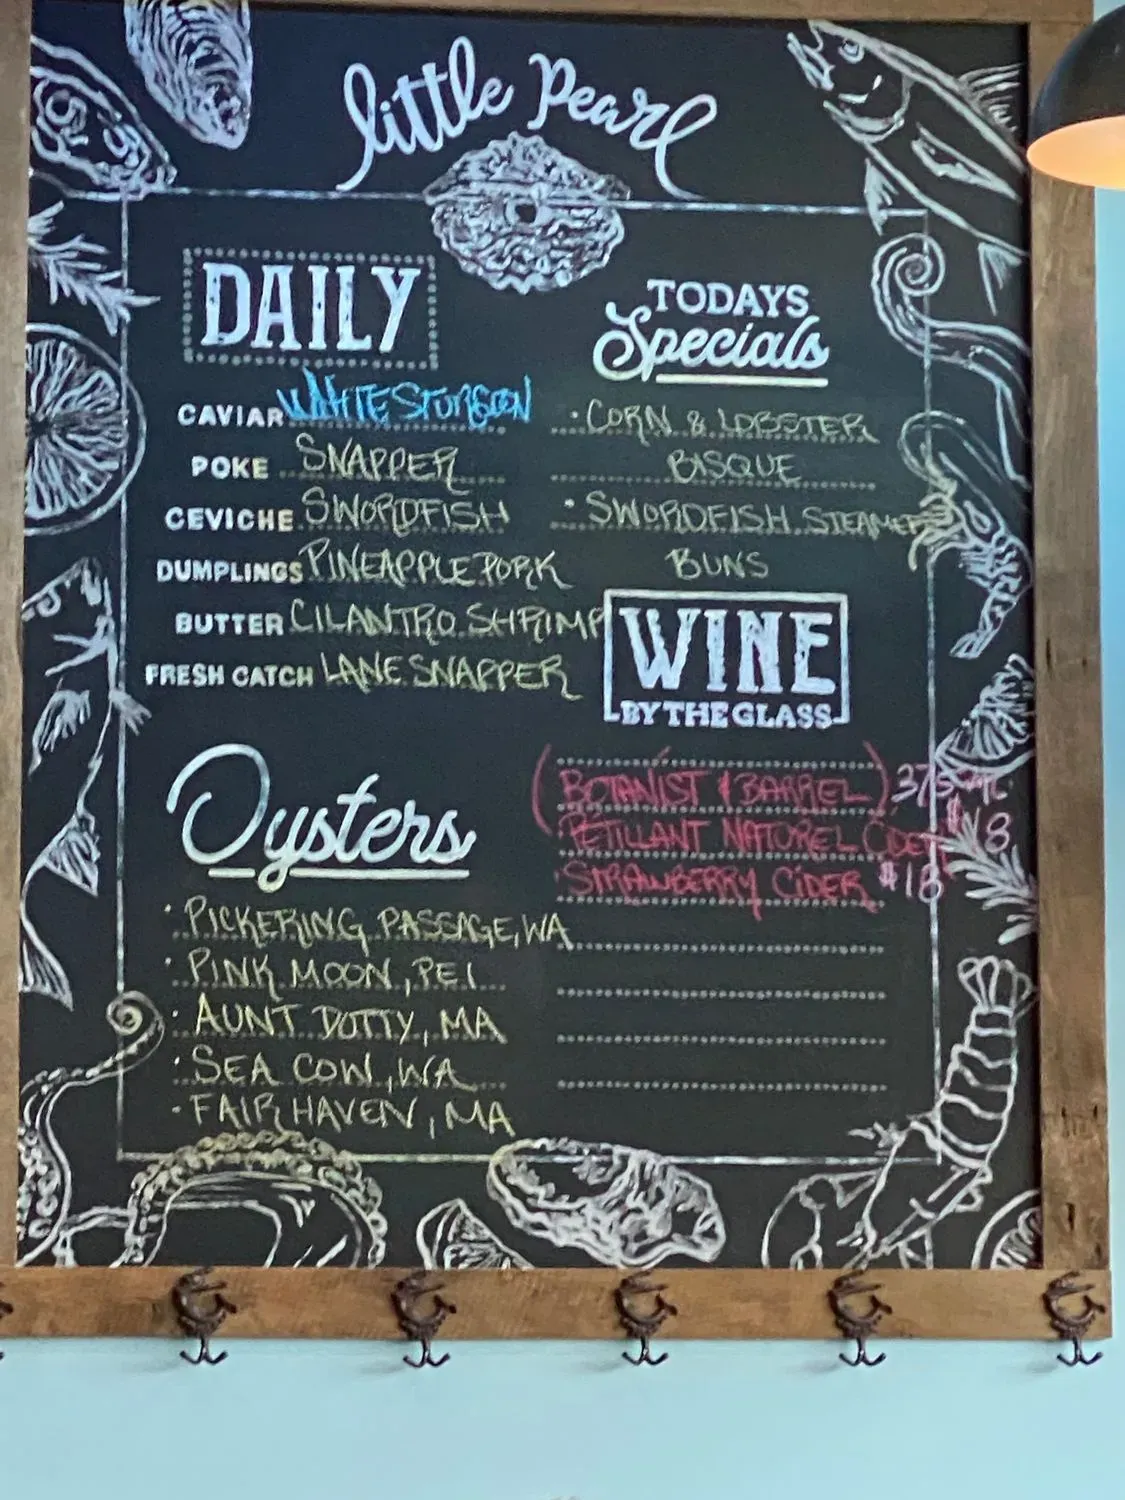 little Pearl
DAILY
CAVIAR WHITE STURGEON
POKE SNAPPER
CEVICHE SWORDFISH
DUMPLINGS PINEAPPLE PORK
BUTTER CILANTRO SHRIMP
FRESH CATCH LANE SNAPPER
TODAYS
Specials
· CORN & LOBSTER
BISQUE
· SWORDFISH STEAMED
BUNS
WINE
BY THE GLASS
(BOTANIST & BARREL)
PETILLANT NATUREL
STRAWBERRY CIDER $18
Oysters
· PICKERING PASSAGE, WA
· PINK MOON, PEI
· AUNT DOTTY, MA
· SEA COW, WA
· FAIRHAVEN, MA